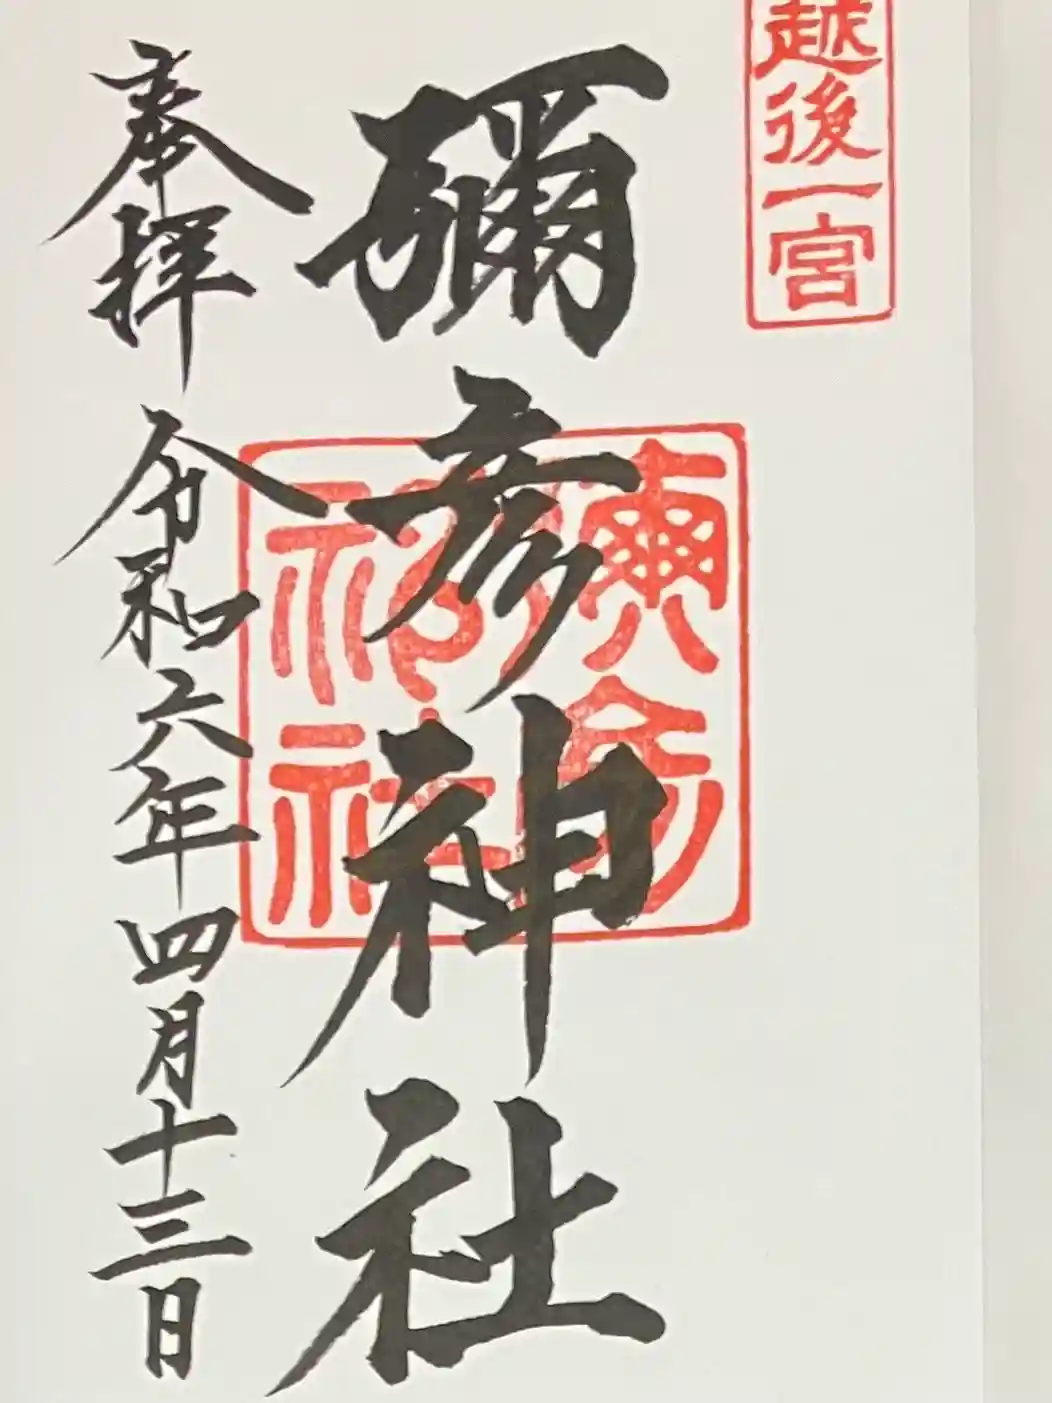 越後一宮
彌彦神社
奉拝 令和六年四月十三日